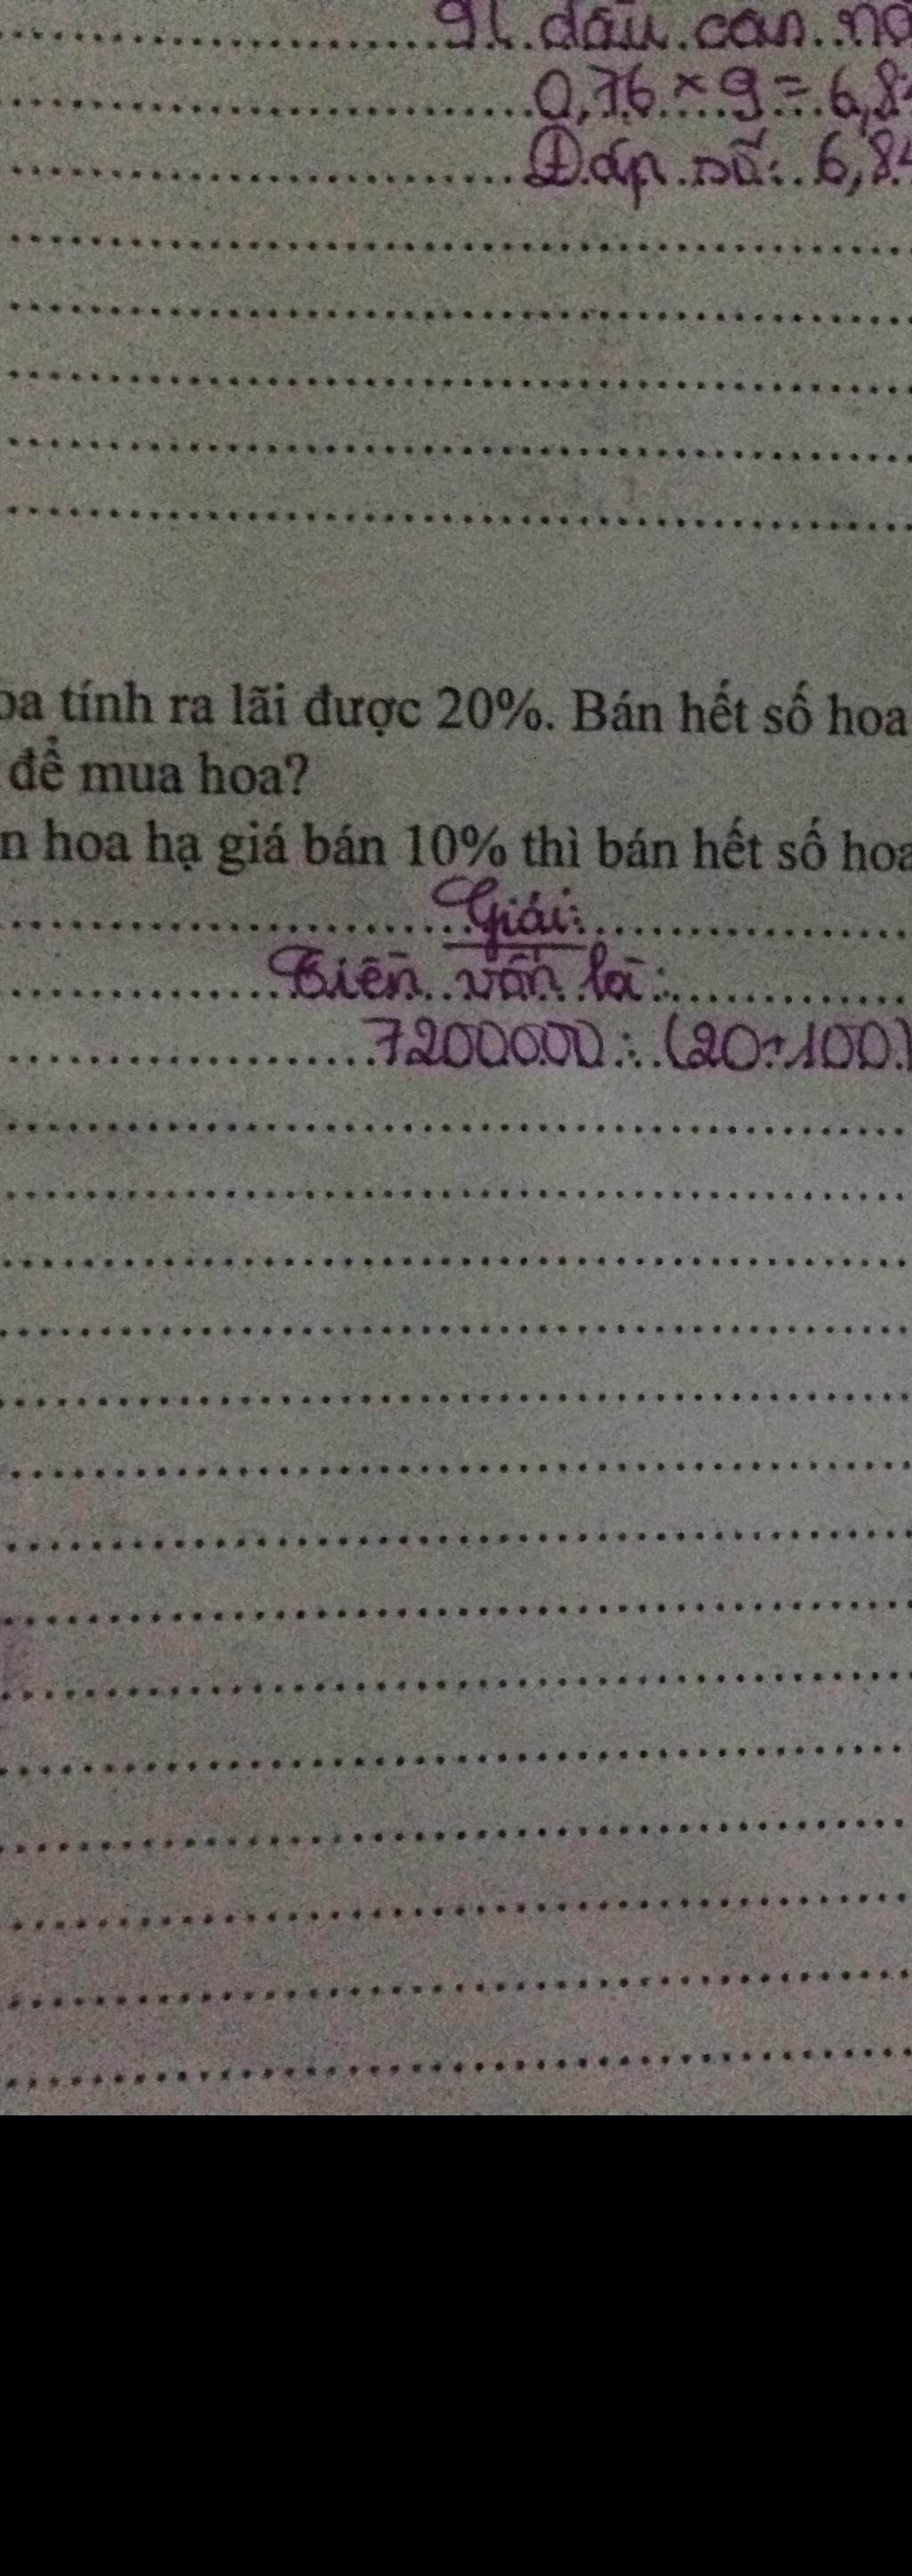 9l dầu cân nặ
0,76 × 9 = 6,84
Đáp số: 6,84
oa tính ra lãi được 20%. Bán hết số hoa
để mua hoa?
n hoa hạ giá bán 10% thì bán hết số hoa
Giải:
Tiền vốn là:
7200000 : (20+100)